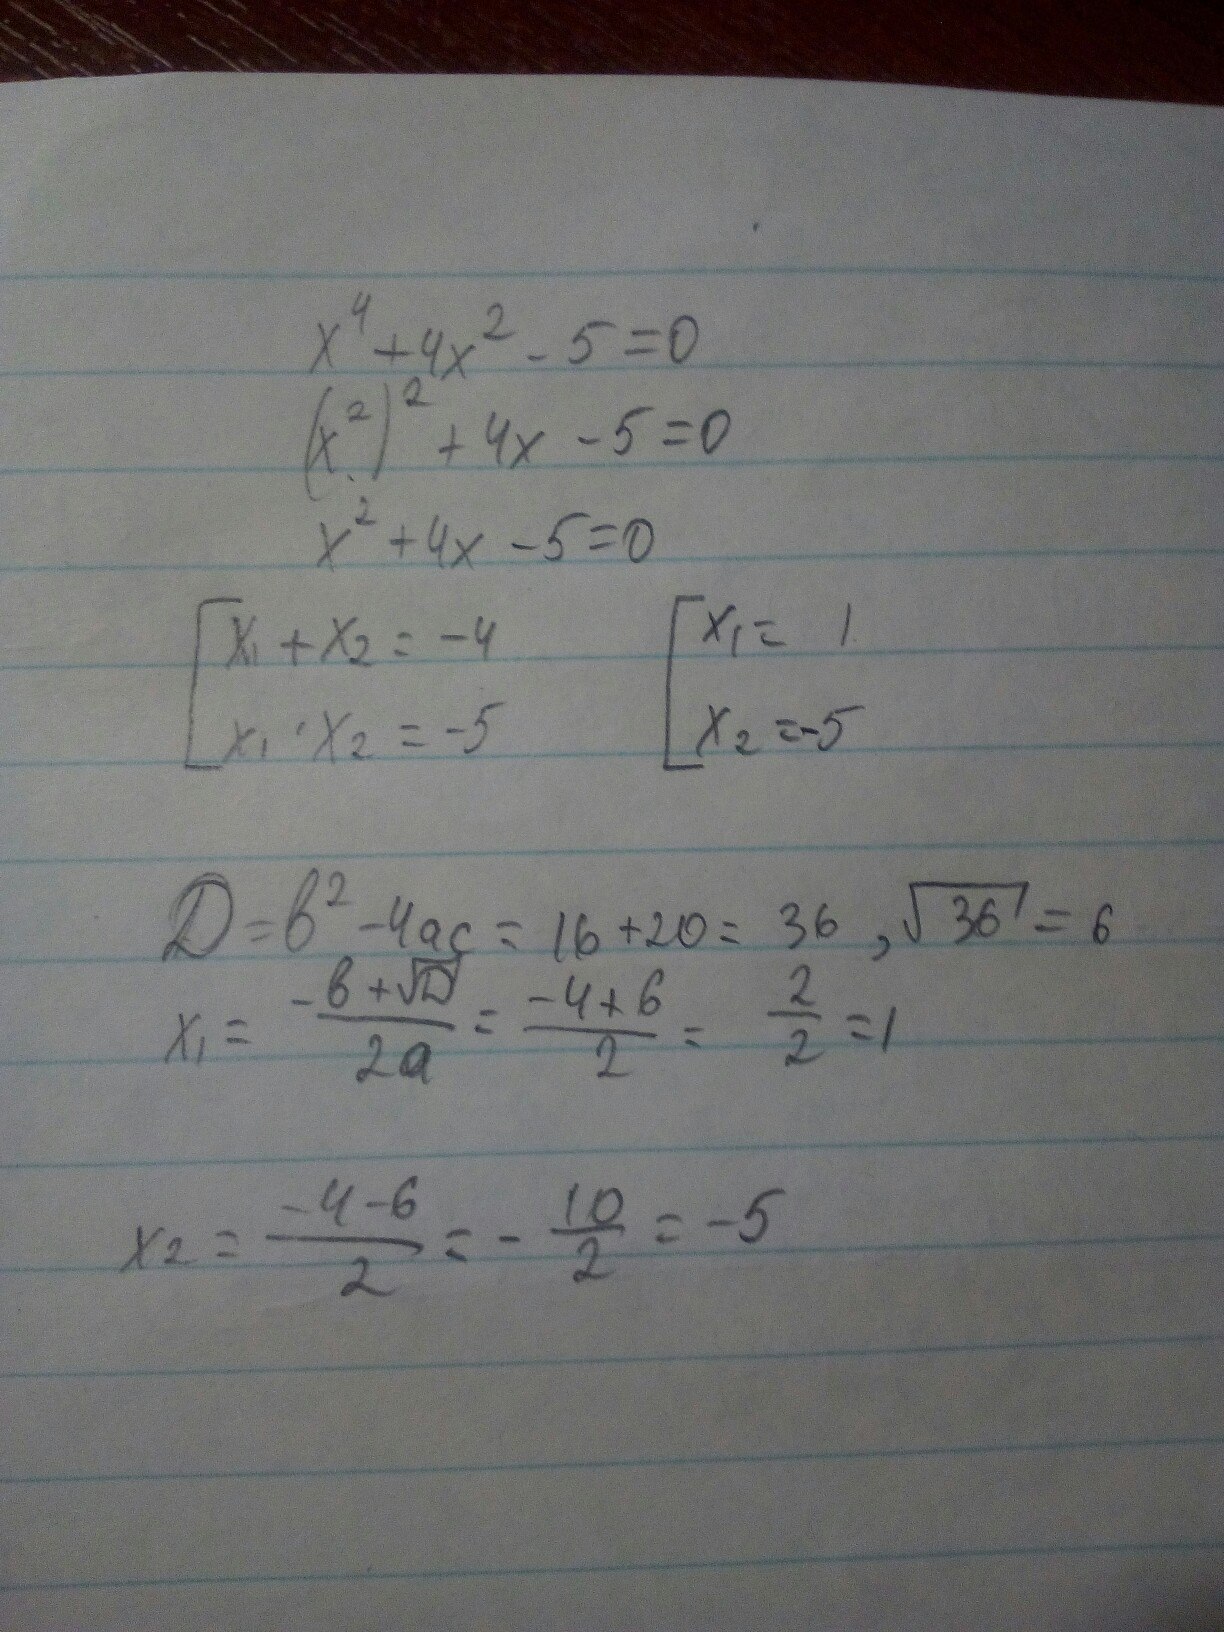 x⁴+4x²-5=0
(x²)²+4x-5=0
x²+4x-5=0
[x₁+x₂=-4 [x₁=1
x₁·x₂=-5 x₂=-5
D=b²-4ac=16+20=36, √36=6
x₁=(-b+√D)/2a=(-4+6)/2=2/2=1
x₂=(-4-6)/2=-10/2=-5